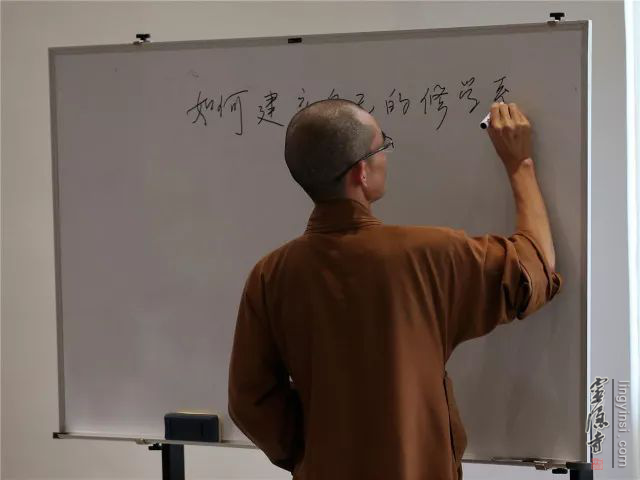 如何建立自己的修学系
灵隐寺
lingyinsi.com